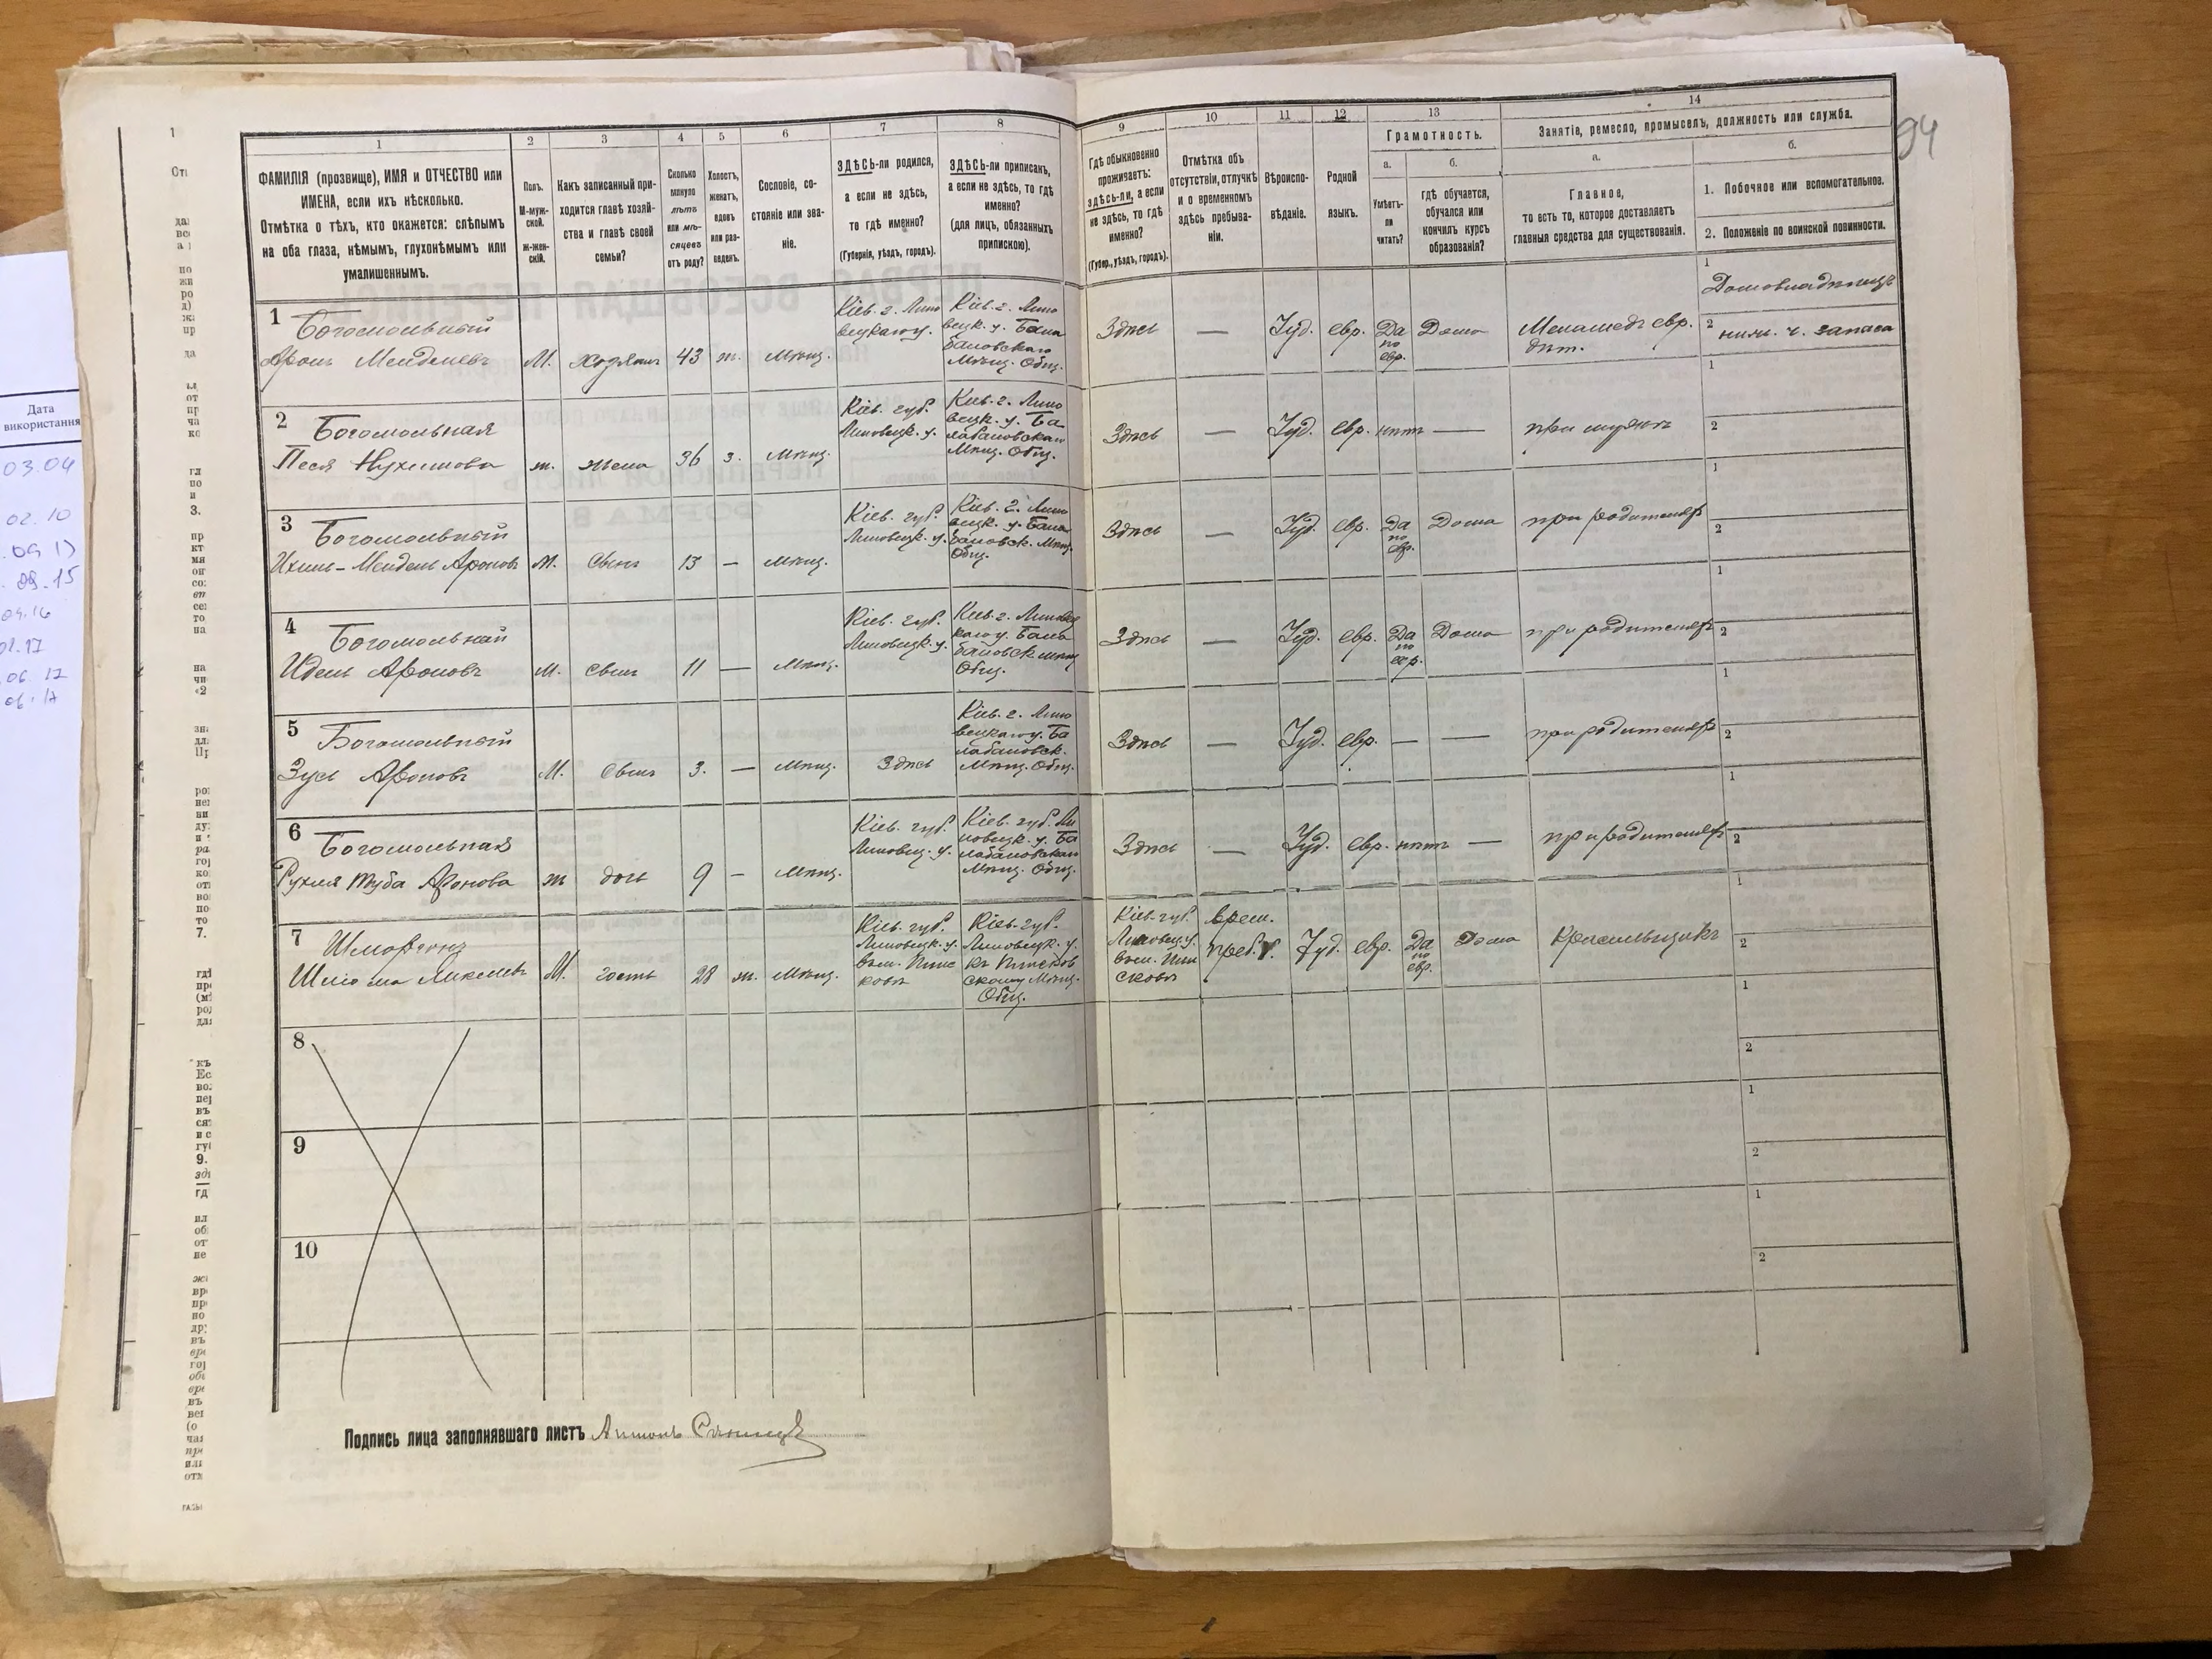 94
1 2 3 4 5 6 7 8 9 10 11 12 13 14
ФАМИЛІЯ (прозвище), ИМЯ и ОТЧЕСТВО или
ИМЕНА, если ихъ нѣсколько.
Отмѣтка о тѣхъ, кто окажется: слѣпымъ
на оба глаза, нѣмымъ, глухонѣмымъ или
умалишеннымъ.
Полъ.
М-муж-
ской.
ж-жен-
скій.
Какъ записанный при-
ходится главѣ хозяй-
ства и главѣ своей
семьи?
Сколько
минуло
лѣтъ
или мѣ-
сяцевъ
отъ роду?
Холостъ,
женатъ,
вдовъ
или раз-
веденъ.
Сословіе, со-
стояніе или зва-
ніе.
ЗДѢСЬ-ли родился,
а если не здѣсь,
то гдѣ именно?
(Губернія, уѣздъ, городъ).
ЗДѢСЬ-ли приписанъ,
а если не здѣсь, то гдѣ
именно?
(для лицъ, обязанныхъ
припискою).
Гдѣ обыкновенно
проживаетъ:
здѣсь-ли, а если
не здѣсь, то гдѣ
именно?
(Губер., уѣздъ, городъ).
Отмѣтка объ
отсутствіи, отлучкѣ
и о временномъ
здѣсь пребыва-
ніи.
Вѣроиспо-
вѣданіе.
Родной
языкъ.
Грамотность.
а.
Умѣетъ-
ли
читать?
б.
гдѣ обучается,
обучался или
кончилъ курсъ
образованія?
Занятіе, ремесло, промыселъ, должность или служба.
а.
Главное,
то есть то, которое доставляетъ
главныя средства для существованія.
б.
1. Побочное или вспомогательное.
2. Положеніе по воинской повинности.
1
Богомольный
Аронъ Менделевъ
М. хозяинъ 43 ж. Мѣщ.
Кіев. г. Липо
вецкаго у.
Кіев. г. Липо
вецк. у. Бала
бановскаго
Мѣщ. Общ.
Здѣсь — Іуд. евр. Да
по
евр.
Дома
Меламедъ евр.
дѣт.
1 Домовладѣлецъ
2 нижн. ч. запаса
2
Богомольная
Песя Нухимова
ж. жена 36 з. Мѣщ.
Кіев. губ.
Липовецк. у.
Кіев. г. Липо
вецк. у. Ба
лабановскаго
Мѣщ. Общ.
Здѣсь — Іуд. евр. нѣтъ — при мужѣ
1
2
3
Богомольный
Ихиль-Мендель Ароновъ
М. сынъ 13 — Мѣщ.
Кіев. губ.
Липовецк. у.
Кіев. г. Липо
вецк. у. Бала
бановск. Мѣщ.
Общ.
Здѣсь — Іуд. евр. Да
по
евр.
Дома при родителяхъ
1
2
4
Богомольный
Идель Ароновъ
М. сынъ 11 — Мѣщ.
Кіев. губ.
Липовецк. у.
Кіев. г. Липовец
каго у. Бала
бановск мѣщ
Общ.
Здѣсь — Іуд. евр. Да
по
евр.
Дома при родителяхъ
1
2
5
Богомольный
Зусь Ароновъ
М. сынъ 3. — Мѣщ. Здѣсь
Кіев. г. Липо
вецкаго у. Ба
лабановск.
Мѣщ. Общ.
Здѣсь — Іуд. евр. — — при родителяхъ
1
2
6
Богомольная
Рухля Туба Аронова
ж дочь 9 — Мѣщ.
Кіев. губ.
Липовец. у.
Кіев. губ. Ли
повецк. у. Ба
лабановскаго
Мѣщ. Общ.
Здѣсь — Іуд. евр. нѣтъ — при родителяхъ
1
2
7
М. гость 28 ж. Мѣщ.
Кіев. губ.
Липовецк. у.
Кіев. губ.
Липовецк. у.
скому Мѣщ.
Общ.
Кіев. губ.
Липовец. у.
врем.
преб.
Іуд. евр. Да
по
евр.
Дома Красильщикъ
1
2
8
1
2
9
1
2
10
1
2
Подпись лица заполнявшаго листъ Антонъ
Дата
використання
03.04
02.10